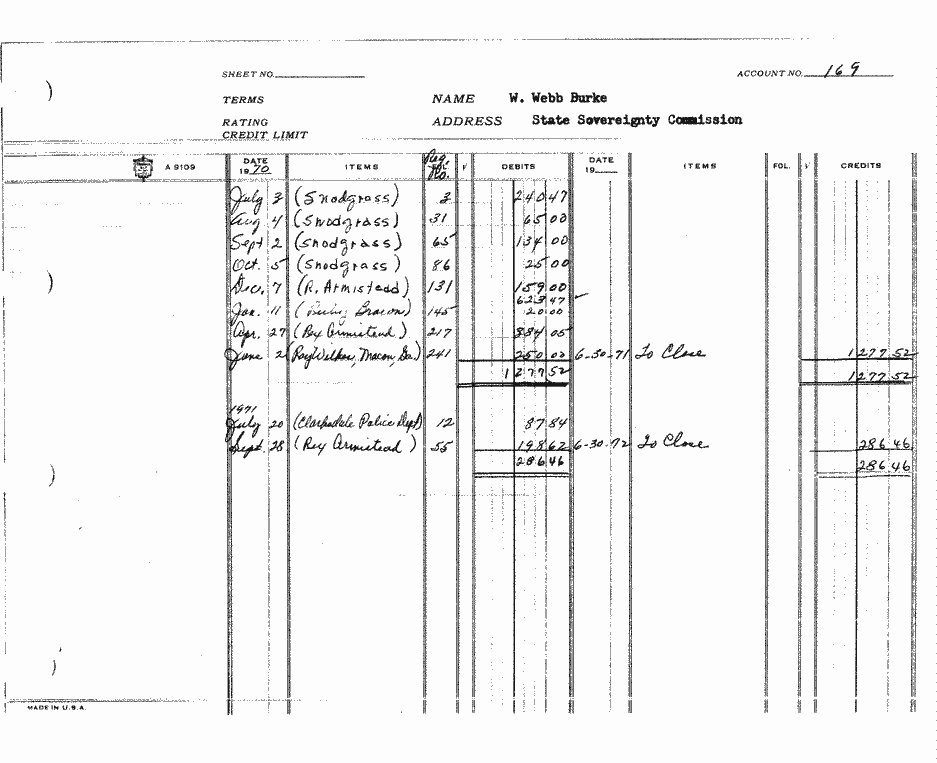 SHEET NO. ACCOUNT NO. 169
TERMS NAME W. Webb Burke
RATING ADDRESS State Sovereignty Commission
CREDIT LIMIT
A 9109 DATE 1970 ITEMS Req. No. √ DEBITS DATE 19 ITEMS FOL. √ CREDITS
July 3 (Snodgrass) 3 240 47
Aug 4 (Snodgrass) 31 65 00
Sept 2 (Snodgrass) 65 134 00
Oct. 5 (Snodgrass) 86 25 00
Dec. 7 (R. Armistead) 131 159 00
623 47 ✓
Jan. 11 ( ) 145 20 00
Apr. 27 (Rex Armistead) 217 384 05
June 2 (Ray Walker, Macon, Ga.) 241 250 00 6-30-71 To Close 1277 52
1277 52 1277 52
1971
July 20 (Clarksdale Police Dept) 12 87 84
Sept. 28 (Rex Armistead) 55 198 62 6-30-72 To Close 286 46
286 46 286 46
MADE IN U.S.A.